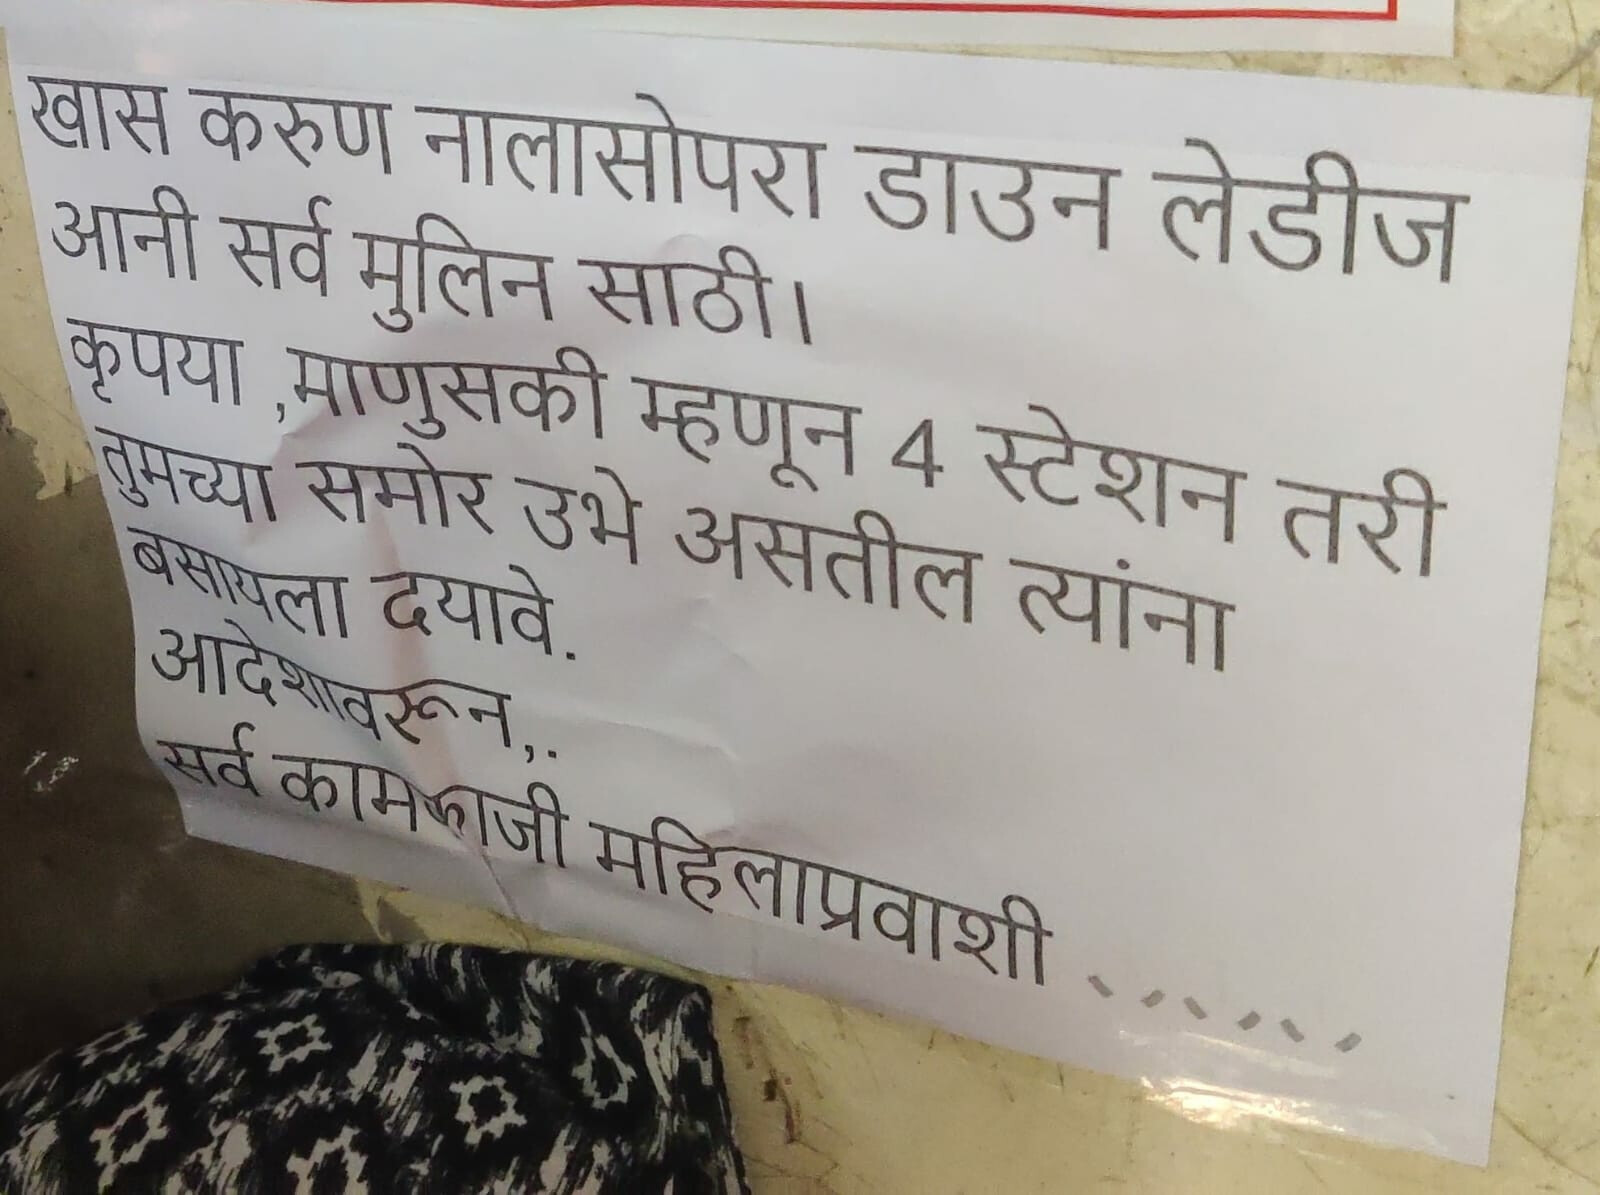 खास करुण नालासोपरा डाउन लेडीज
आनी सर्व मुलिन साठी।
कृपया ,माणुसकी म्हणून 4 स्टेशन तरी
तुमच्या समोर उभे असतील त्यांना
बसायला दयावे.
आदेशावरून,.
सर्व कामकाजी महिलाप्रवाशी ......